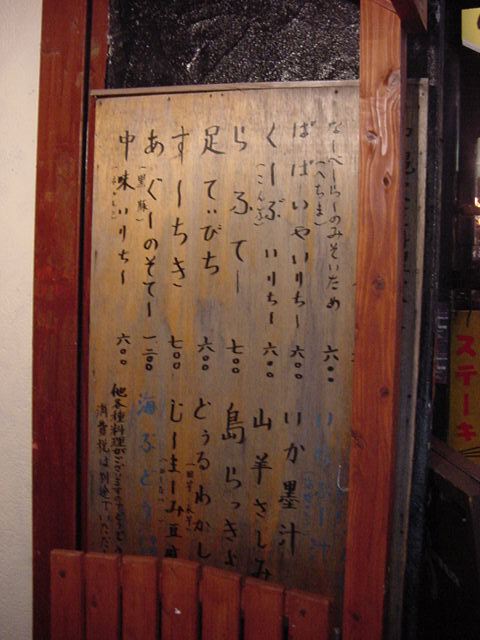 なーべーらーのみそいため
(へちま)
六〇〇
ぱぱーいやいりちー
六〇〇
くーぶいりちー
(こんぶ)
六〇〇
らふてー
七〇〇
足てぃびち
六〇〇
すーちき
七〇〇
あぐーのそてー
(黒豚)
一二〇〇
中味いりちー
六〇〇
いか墨汁
山羊さしみ
島らっきょ
どぅるわかし
じーまーみ豆腐
海ぶどう
他各種料理が
消費税は別途
ステーキ